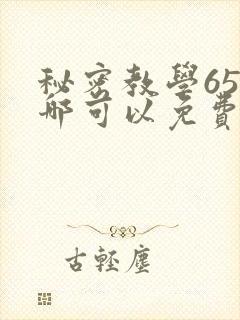 秘密教學65
哪可以免費
古輕塵